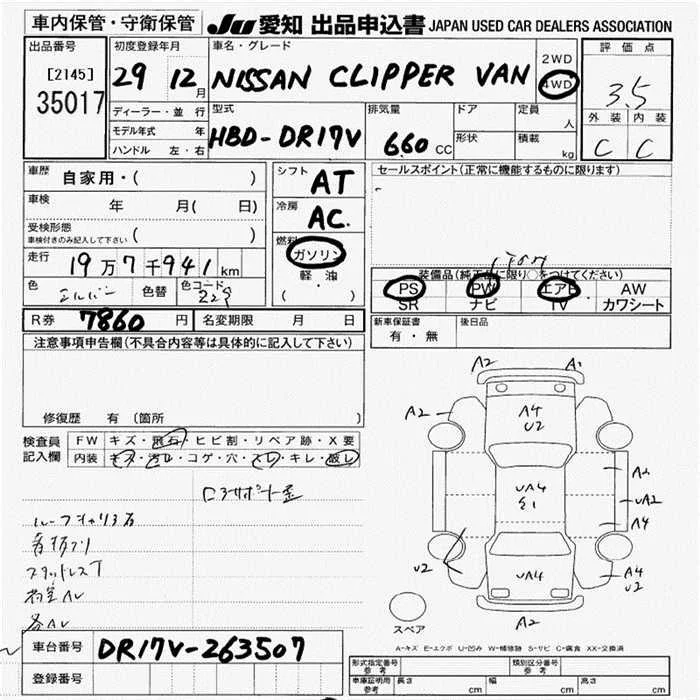 車内保管・守衛保管 JU 愛知 出品申込書 JAPAN USED CAR DEALERS ASSOCIATION
出品番号
[2145]
35017
初度登録年月
29 12月
ディーラー・並行
モデル年式 年
ハンドル 左・右
車名・グレード
NISSAN CLIPPER VAN
2WD
4WD
型式
HBD-DR17V
排気量
660 CC
ドア
形状
定員
人
積載
kg
評価点
3.5
外装 内装
C C
車歴
自家用・( )
車検
年 月( 日)
受検形態
車検付きのみ記入して下さい ( )
走行
19万7千941km
色
シルバー
色替
色コード
シフト
AT
冷房
AC
燃料
ガソリン
軽・油
( )
セールスポイント(正常に機能するものに限ります)
装備品(純正品に限り○をつけてください)
PS PW エアB AW
SR ナビ TV カワシート
R券 7860 円 名変期限 月 日
新車保証書
有・無
後日品
注意事項申告欄(不具合内容等は具体的に記入して下さい)
修復歴 有 〔箇所 〕
検査員
記入欄
FW キズ・飛石・ヒビ割・リペア跡・X要
内装 キズ・汚レ・コゲ・穴・スレ・キレ・破レ
スタッドレスT
A2 A1
A2 A4
U2
A2
UA4
E1
UA2
A4
U2 UA4 A4
U2
A2
スペア
A-キズ E-エクボ U-凹み W-補修跡 S-サビ C-腐食 XX-交換済
車台番号 DR17V-263507
登録番号
形式指定番号
参考
類別区分番号
参考
車庫証明用
参考
長さ cm 幅 cm 高さ cm